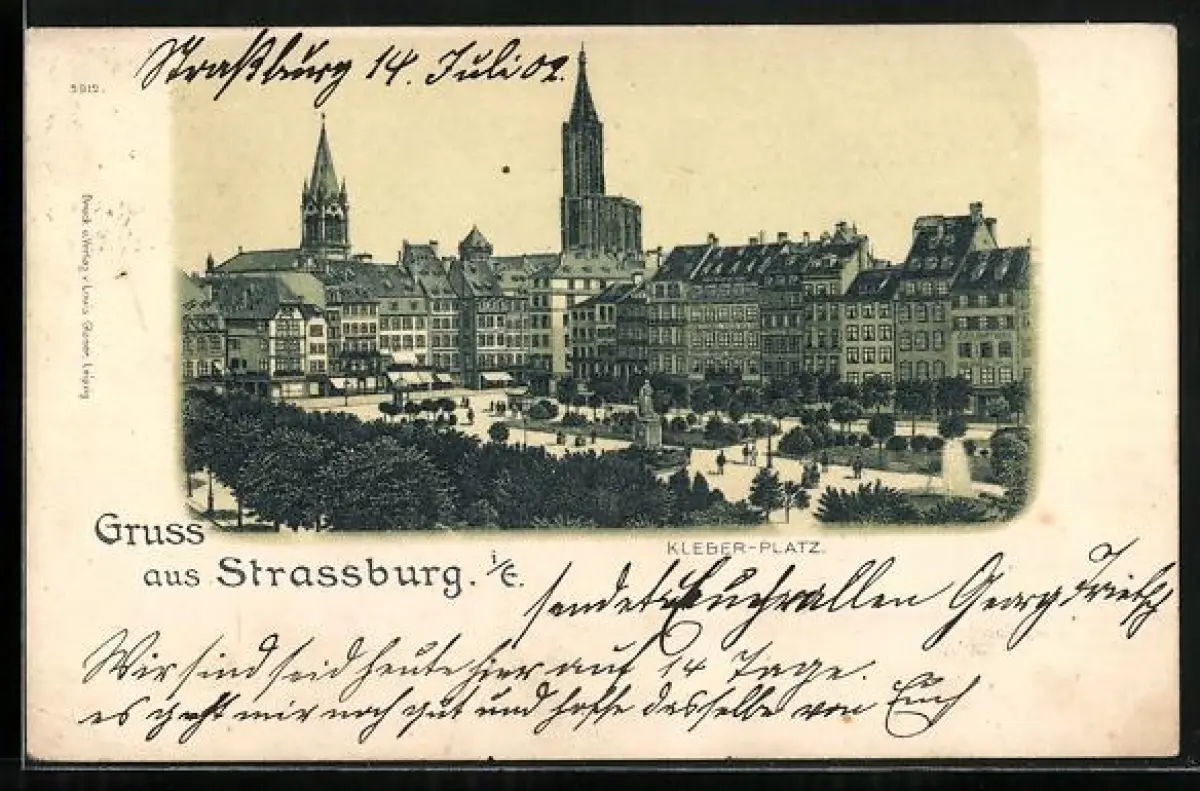 Straßburg 14. Juli 02.
5912.
Druck u. Verlag v. Louis Glaser, Leipzig
KLEBER-PLATZ.
Gruss
aus Strassburg. i/E.
sendet Euch allen Georg
Wir sind seid heute hier auf 14 Tage.
es geht mir noch gut und hoffe dasselbe von Euch